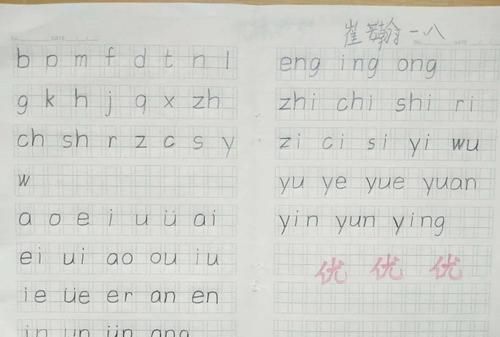 b p m f d t n l
g k h j q x zh
ch sh r z c s y
w
a o e i u ü ai
ei ui ao ou iu
ie üe er an en
in un ün ang
崔翰一八
eng ing ong
zhi chi shi ri
zi ci si yi wu
yu ye yue yuan
yin yun ying
优 优 优